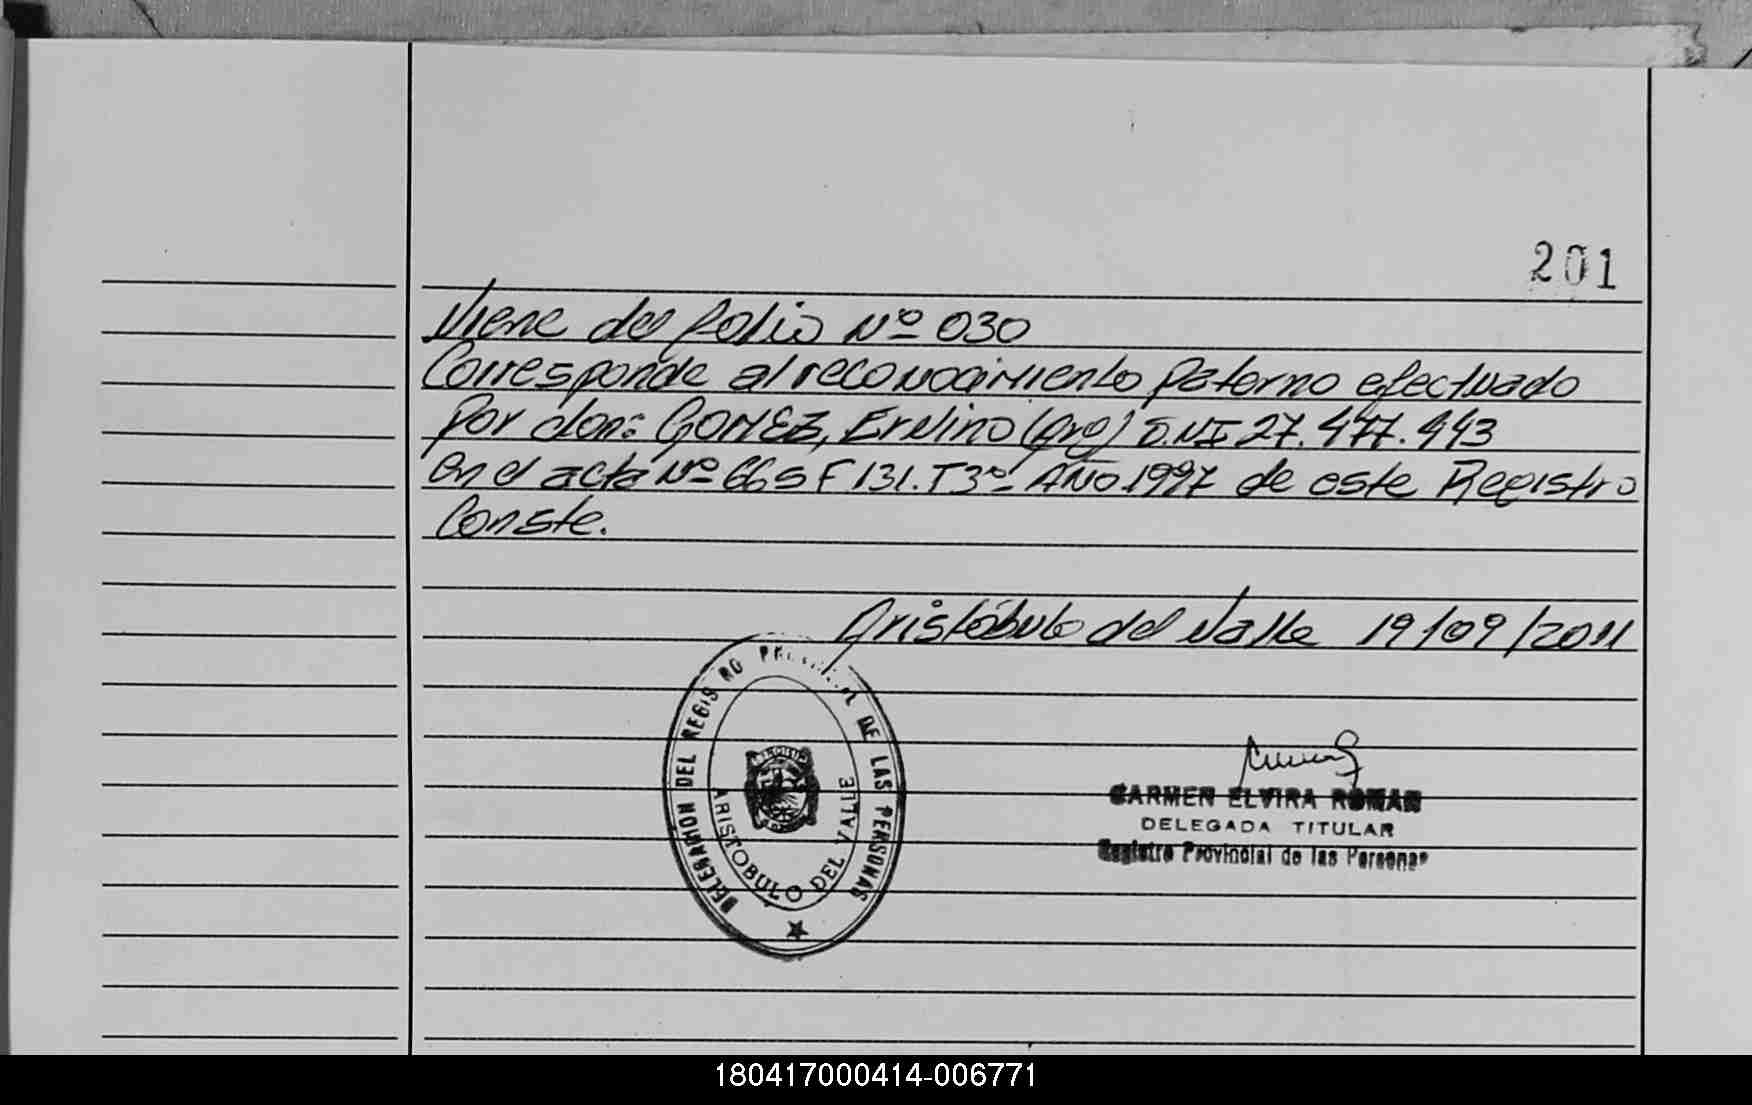 201
Viene del folio Nº 030
Corresponde al reconocimiento paterno efectuado
por don: GOMEZ, Ervino (Arg) D.NI 27.477.443
en el acta Nº 665 F 131. T3º AÑO 1997 de este Registro
Conste.
Aristóbulo del Valle 19/09/2011
DELEGACION DEL REGISTRO PROVINCIAL DE LAS PERSONAS
ARISTOBULO DEL VALLE
CARMEN ELVIRA ROMAN
DELEGADA TITULAR
Registro Provincial de las Personas
180417000414-006771